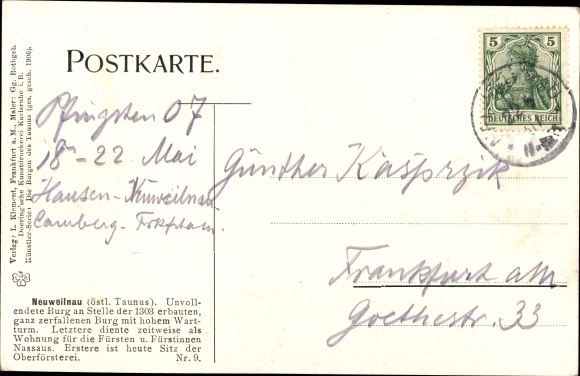 POSTKARTE.
5 5
DEUTSCHES REICH
Verlag: L. Klement, Frankfurt a. M., Maler: Gg. Rothgeb.
Doering'sche Kunstdruckerei Karlsruhe i. B.
Künstler-Serie: Die Burgen des Taunus (ges. gesch. 1906).
Pfingsten 07
18-22. Mai
Hausen-Neuweilnau
Camberg-
Günther Kašprzik
Frankfurt am
Goethestr. 33
Neuweilnau (östl. Taunus). Unvoll-
endete Burg an Stelle der 1303 erbauten,
ganz zerfallenen Burg mit hohem Wart-
turm. Letztere diente zeitweise als
Wohnung für die Fürsten u. Fürstinnen
Nassaus. Erstere ist heute Sitz der
Oberförsterei. Nr. 9.